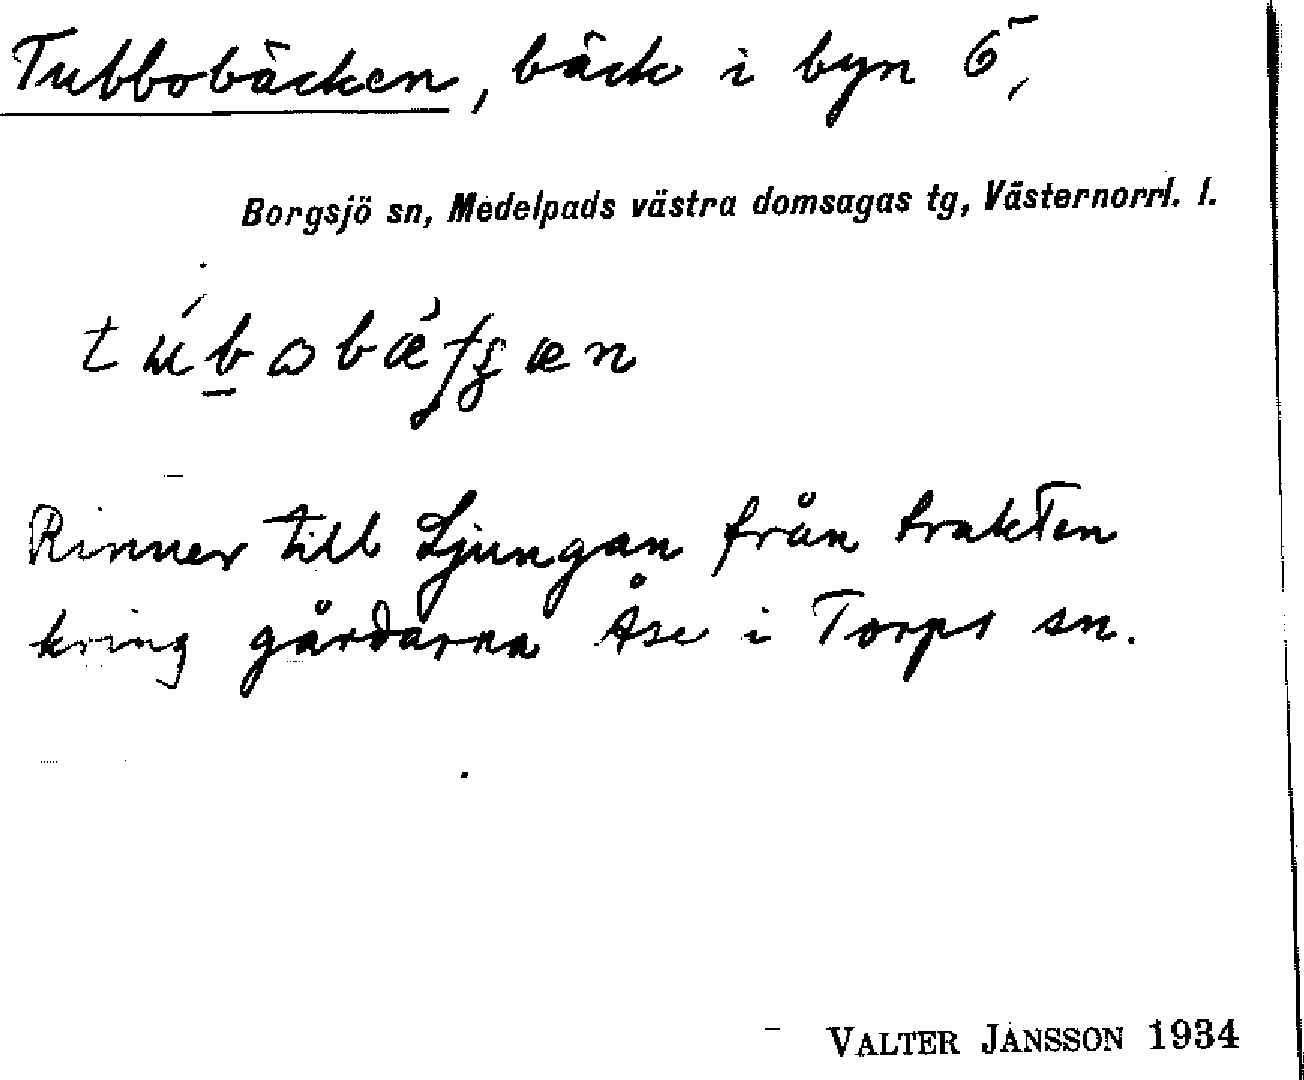 Tubbobäcken, bäck i byn Ö,
Borgsjö sn, Medelpads västra domsagas tg, Västernorrl. l.
Rinner till Ljungan från trakten
kring gårdarna Åse i Torps sn.
VALTER JANSSON 1934